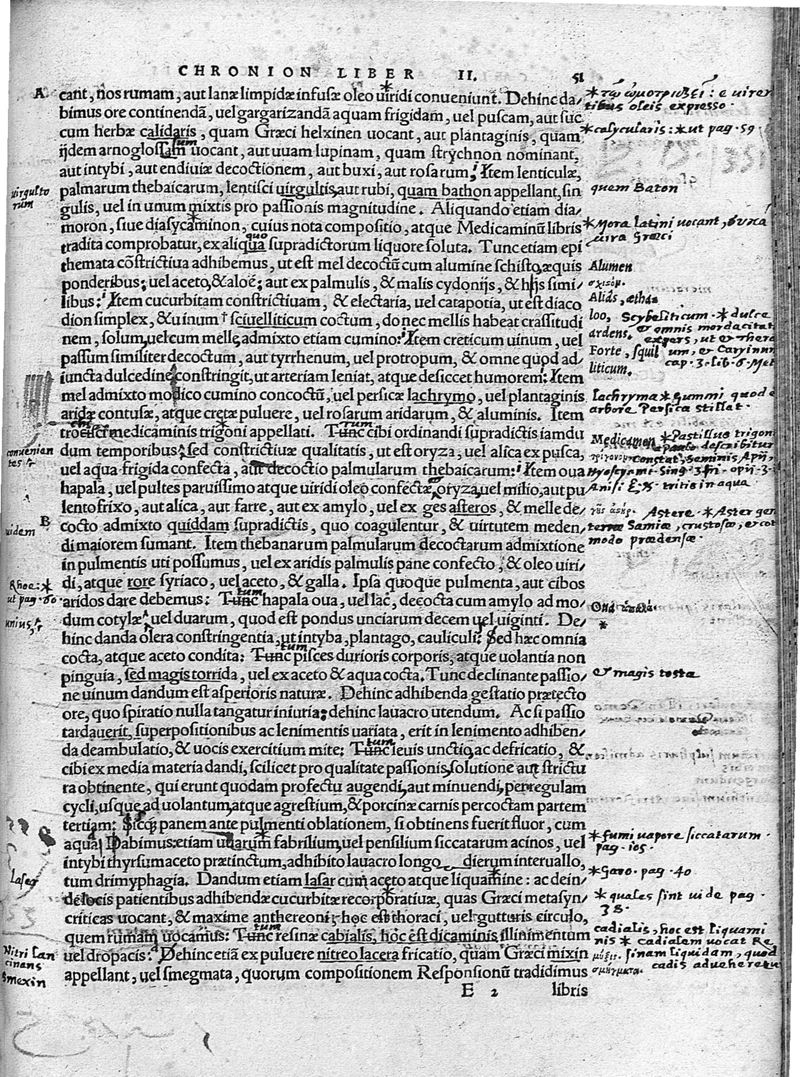 CHRONION LIBER II. 51
A cant, nos rumam, aut lanæ limpidæ infusæ oleo uiridi conueniunt. Dehinc da-
bimus ore continendā, uel gargarizandā aquam frigidam, uel puscam, aut suc
cum herbæ calidaris, quam Græci helxinen uocant, aut plantaginis, quam
ijdem arnoglossam uocant, aut uuam lupinam, quam strychnon nominant,
aut intybi, aut endiuiæ decoctionem, aut buxi, aut rosarum: Item lenticulæ,
palmarum thebaicarum, lentisci uirgultis, aut rubi, quam bathon appellant, sin
gulis, uel in unum mixtis pro passionis magnitudine. Aliquando etiam dia-
moron, siue diasycaminon, cuius nota compositio, atque Medicaminū libris
tradita comprobatur, ex aliqua supradictorum liquore soluta. Tunc etiam epi
themata cōstrictiua adhibemus, ut est mel decoctū cum alumine schisto, æquis
ponderibus: uel aceto, & aloë: aut ex palmulis, & malis cydonijs, & hijs simi-
libus: Item cucurbitam constrictiuam, & electaria, uel catapotia, ut est diaco
dion simplex, & uinum † sciuelliticum coctum, donec mellis habeat crassitudi
nem, solum, uel cum melle, admixto etiam cumino: Item creticum uinum, uel
passum similiter decoctum, aut tyrrhenum, uel protropum, & omne quod ad-
iuncta dulcedine constringit, ut arteriam leniat, atque desiccet humorem: Item
mel admixto modico cumino concoctū, uel persicæ lachrymo, uel plantaginis
aridæ contusæ, atque cretæ puluere, uel rosarum aridarum, & aluminis. Item
trocisci medicaminis trigoni appellati. Tunc cibi ordinandi supradictis iamdu
dum temporibus, sed constrictiuæ qualitatis, ut est oryza, uel alica ex pusca,
uel aqua frigida confecta, aut decoctio palmularum thebaicarum: Item oua
hapala, uel pultes paruissimo atque uiridi oleo confectæ, oryza, uel milio, aut pu
lento frixo, aut alica, aut farre, aut ex amylo, uel ex ges asteros, & melle de-
B cocto admixto quiddam supradictis, quo coagulentur, & uirtutem meden-
di maiorem sumant. Item thebanarum palmularum decoctarum admixtione
in pulmentis uti possumus, uel ex aridis palmulis pane confecto, & oleo uiri-
di, atque rore syriaco, uel aceto, & galla. Ipsa quoque pulmenta, aut cibos
aridos dare debemus: Tunc hapala oua, uel lac, decocta cum amylo ad mo-
dum cotylæ, uel duarum, quod est pondus unciarum decem uel uiginti. De-
hinc danda olera constringentia, ut intyba, plantago, cauliculi: Sed hæc omnia
cocta, atque aceto condita: Tunc pisces durioris corporis, atque uolantia non
pinguia, sed magis torrida, uel ex aceto & aqua cocta. Tunc declinante passio-
ne uinum dandum est asperioris naturæ. Dehinc adhibenda gestatio prætecto
ore, quo spiratio nulla tangatur iniuria: dehinc lauacro utendum. Ac si passio
tardauerit, superpositionibus ac lenimentis uariata, erit in lenimento adhiben-
da deambulatio, & uocis exercitium mite: Tunc leuis unctio, ac defricatio, &
cibi ex media materia dandi, scilicet pro qualitate passionis, solutione aut strictu
ra obtinente, qui erunt quodam profectu augendi, aut minuendi, per regulam
cycli, usque ad uolantum, atque agrestium, & porcinæ carnis percoctam partem
tertiam: Sicq; panem ante pulmenti oblationem, si obtinens fuerit fluor, cum
aqua Dabimus: etiam uuarum fabrilium, uel pensilium siccatarum acinos, uel
intybi thyrsum aceto prætinctum, adhibito lauacro longo dierum interuallo,
tum drimyphagia. Dandum etiam lasar cum aceto atque liquamine: ac dein-
de locis patientibus adhibendæ cucurbitæ recorporatiuæ, quas Græci metasyn-
criticas uocant, & maxime anthereoni, hoc est thoraci, uel gutturis circulo,
quem rumam uocamus: Tunc resinæ cabialis, hoc est dicaminis, illinimentum
uel dropacis: Dehinc etiā ex puluere nitreo lacera fricatio, quam Græci mixin
appellant, uel smegmata, quorum compositionem Responsionū tradidimus
E 2 libris
uirgulto
rum
conuenien
tes
uidem
Rhoe: *
ut pag. 60.
unius,
Laser
Nitri lan
cinans
smexin
tibus oleis expresso.
* calycularis: * ut pag. 59.
quem Baton
* Mora latini uocant,
Græci
Alumen
σχιστόν.
Aliàs,
loo, Scybeliticum. * dulce
ardens. & omnis mordacitat
expers, ut & Thera
Forte, squil um, & Caryinum
liticum. cap. 3. lib. 6. Met
Lachryma * gummi quod e
arbore Persica stillat.
Medicamen * Pastillus trigoni
constat, seminis Apij,
Anisi tritis in aqua
γῆς ἀστὴρ. Astere. * Aster gen
terræ Samiæ, crustosæ, et co
modo prædensæ.
Oua ἁπαλά.
*
& magis tosta
* fumi uapore siccatarum.
pag. 105.
* Garo. pag. 40
* quales sint uide pag.
38.
cadialis, hoc est liquami
nis * cadialem uocat Re
sinam liquidam, quod
cadis adueheretur
σμήγματα.